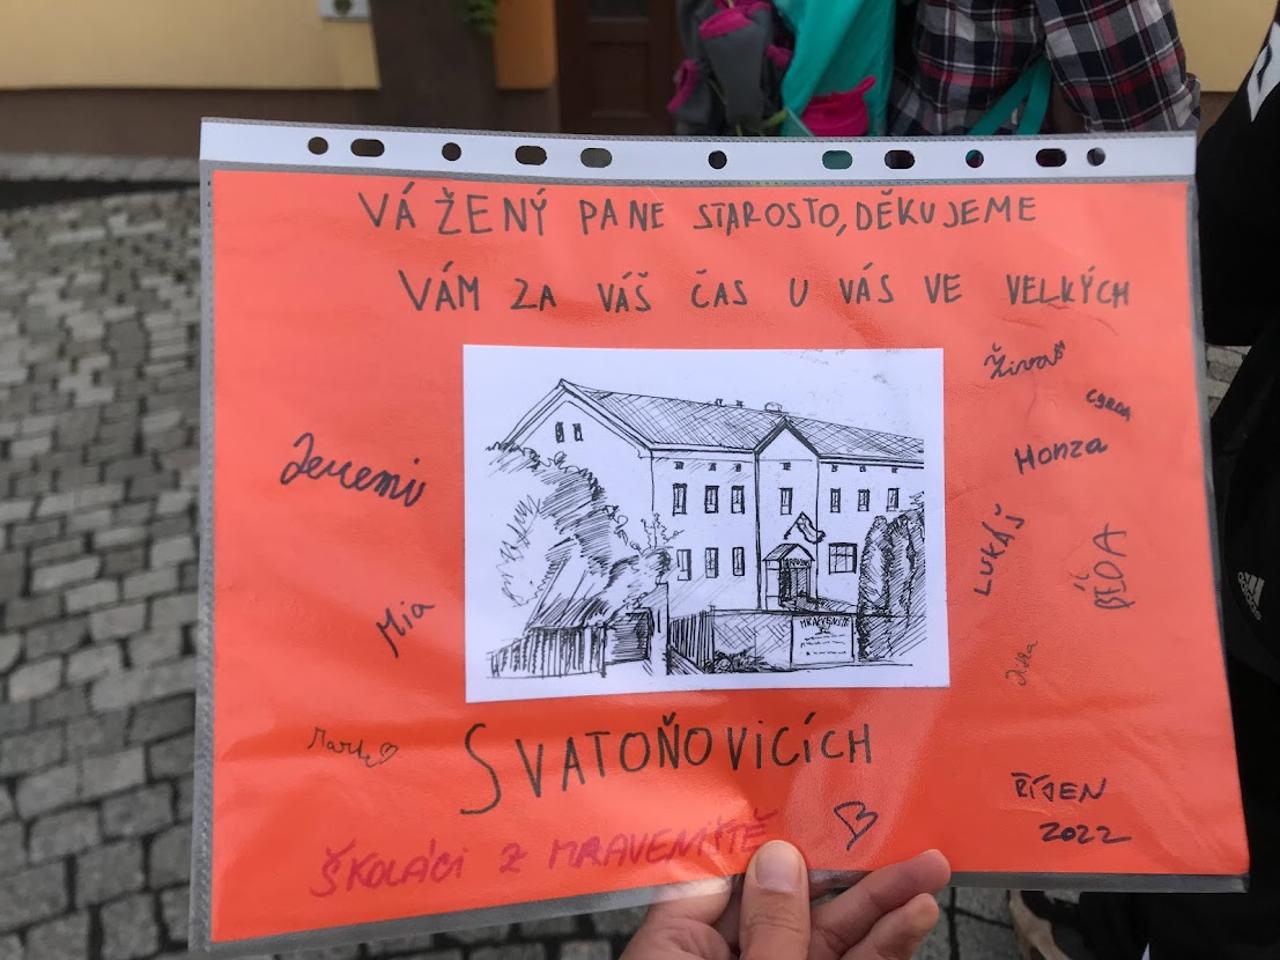 VÁŽENÝ PANE STAROSTO, DĚKUJEME
VÁM ZA VÁŠ ČAS U VÁS VE VELKÝCH
Živa
Honza
Jeremi
LUKÁŠ
BÉĎA
Mia
MRAVENIŠTĚ
SVATOŇOVICÍCH
ŘÍJEN
2022
ŠKOLÁCI Z MRAVENIŠTĚ